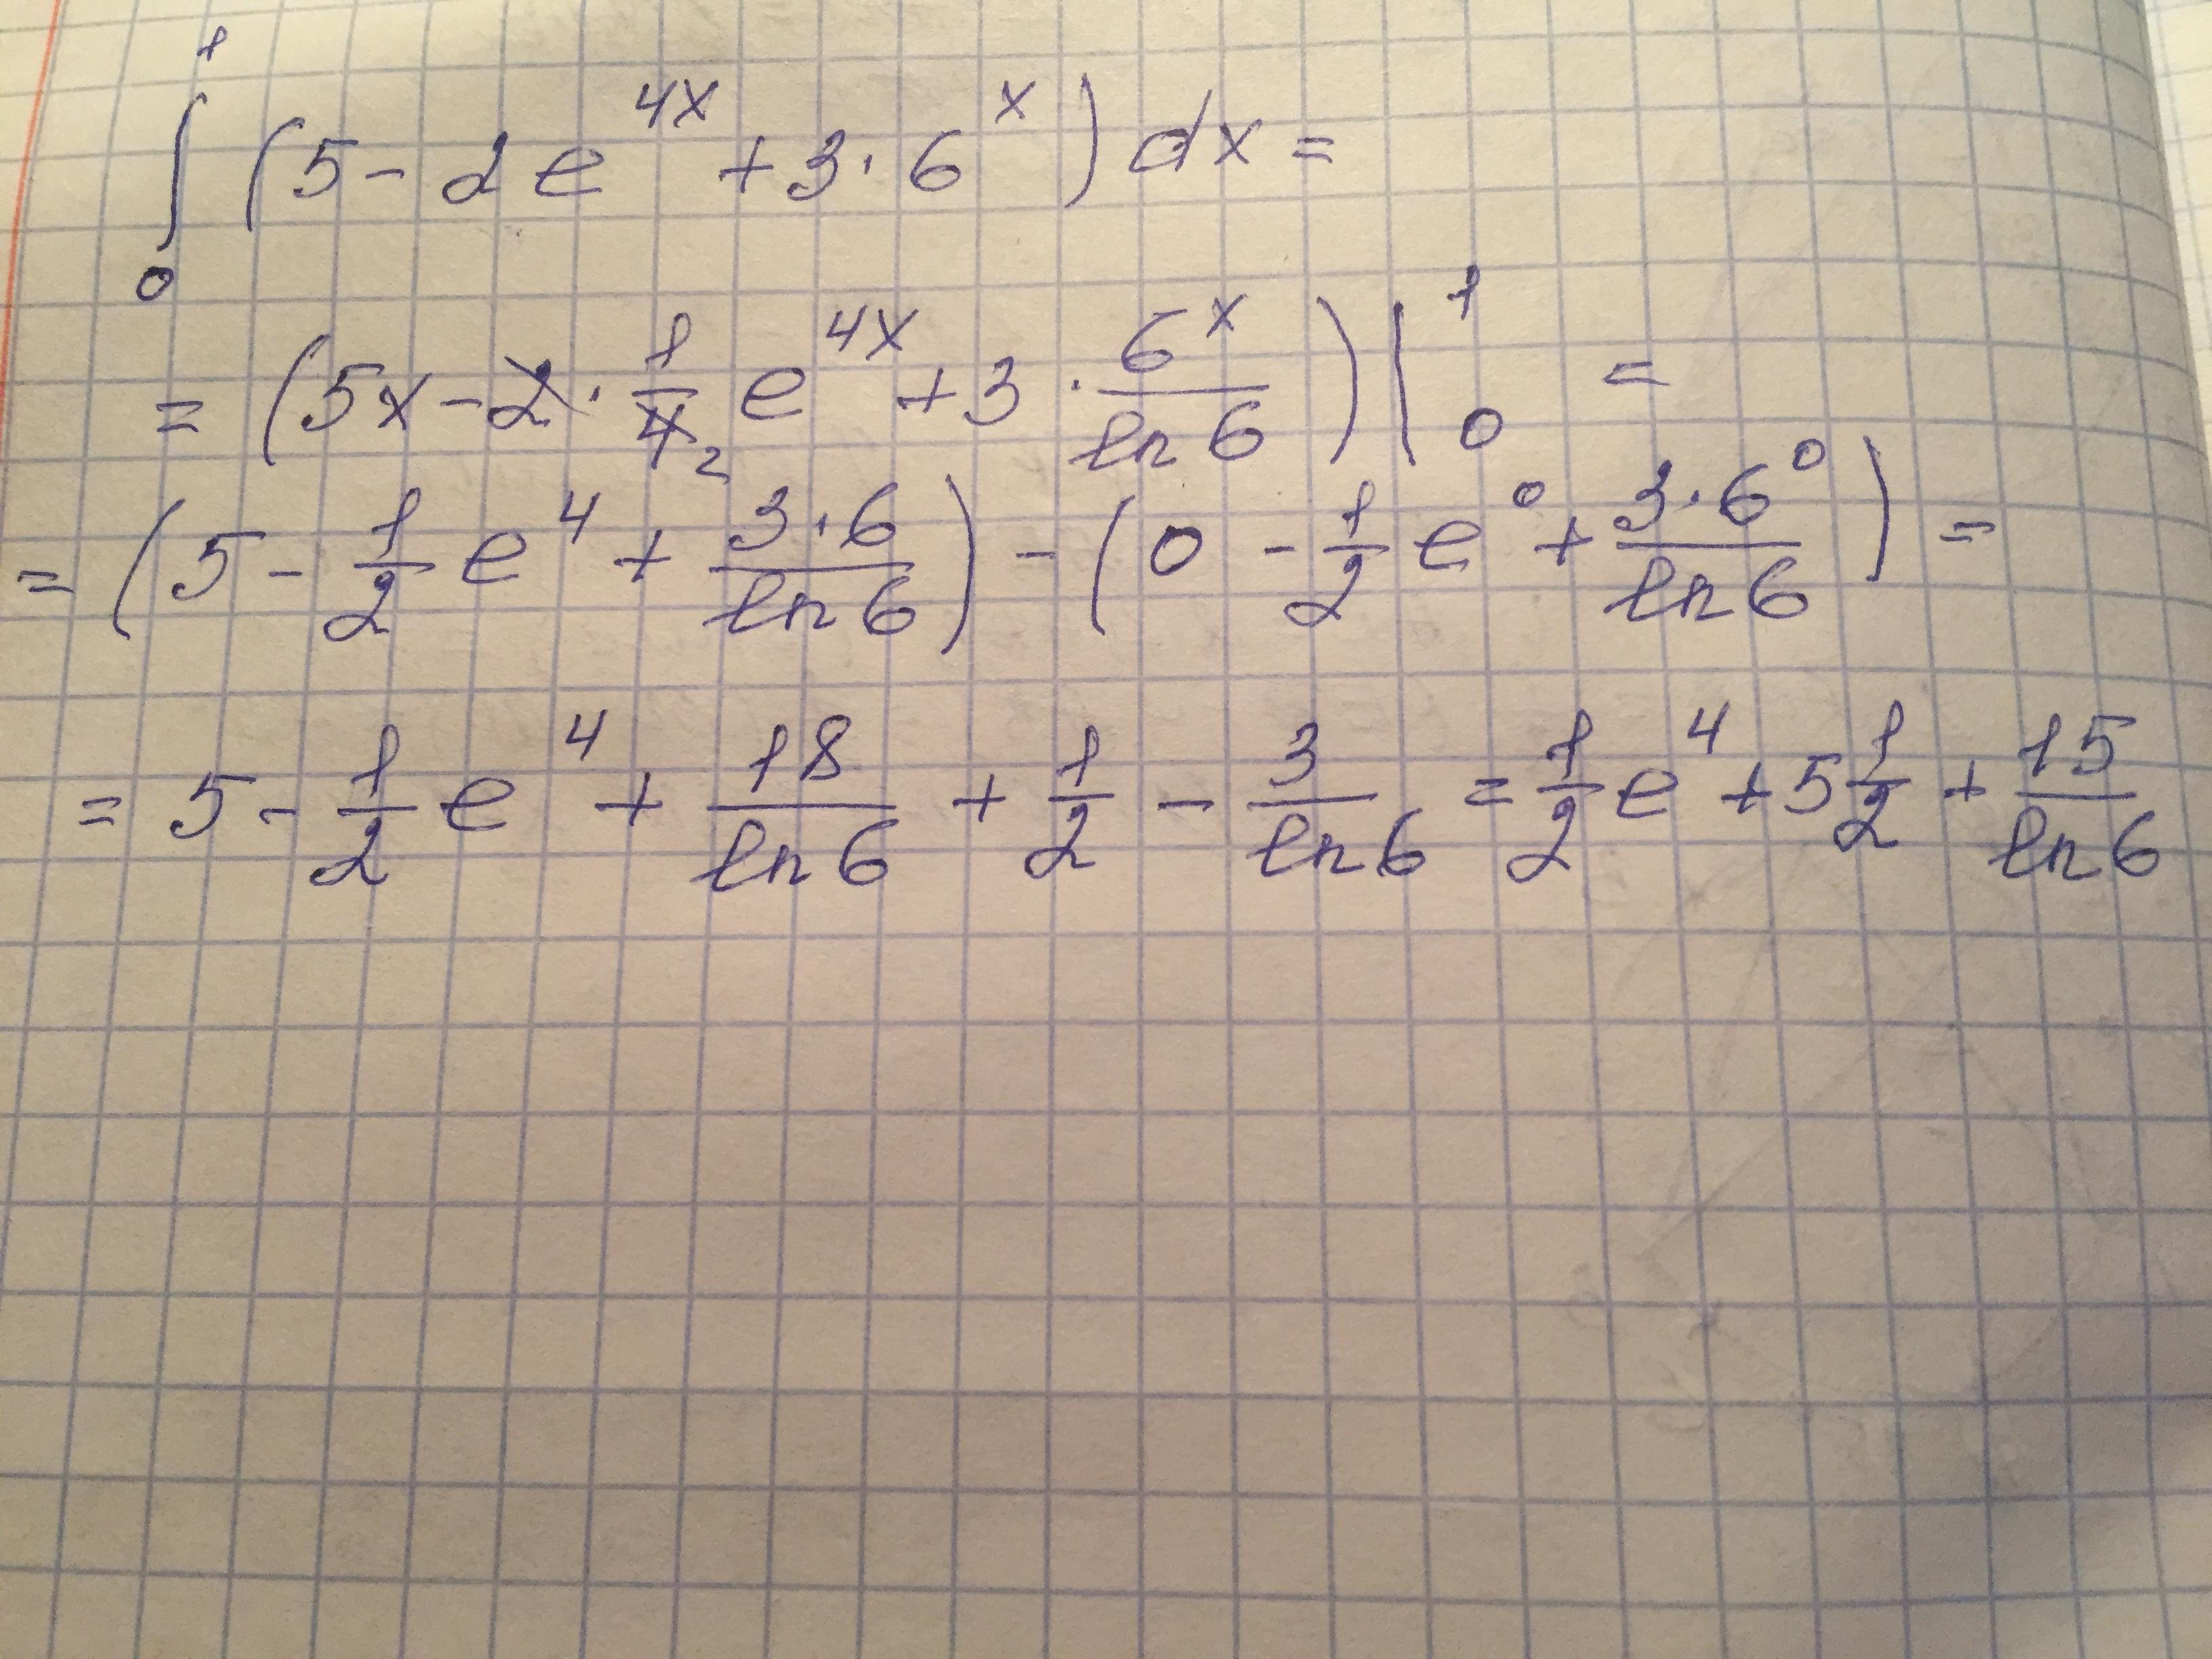 ∫₀¹ (5 - 2e^{4x} + 3·6^x) dx =
= (5x - 2·\frac{1}{4}_2 e^{4x} + 3·\frac{6^x}{ln 6}) |₀¹ =
= (5 - \frac{1}{2} e^4 + \frac{3·6}{ln 6}) - (0 - \frac{1}{2} e^0 + \frac{3·6^0}{ln 6}) =
= 5 - \frac{1}{2} e^4 + \frac{18}{ln 6} + \frac{1}{2} - \frac{3}{ln 6} = \frac{1}{2} e^4 + 5\frac{1}{2} + \frac{15}{ln 6}